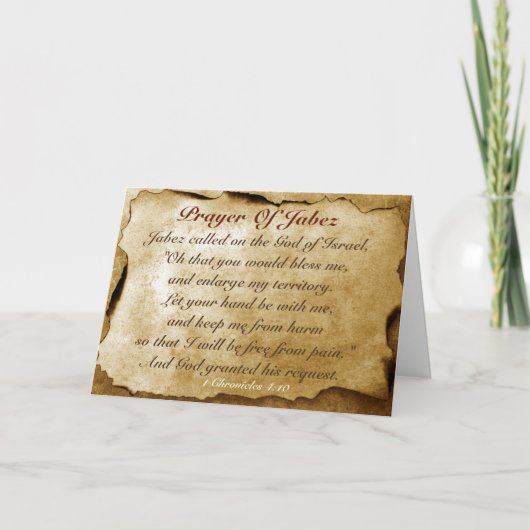 Prayer Of Jabez
Jabez called on the God of Israel,
"Oh that you would bless me,
and enlarge my territory.
Let your hand be with me,
and keep me from harm
so that I will be free from pain. "
And God granted his request.
1 Chronicles 4:10